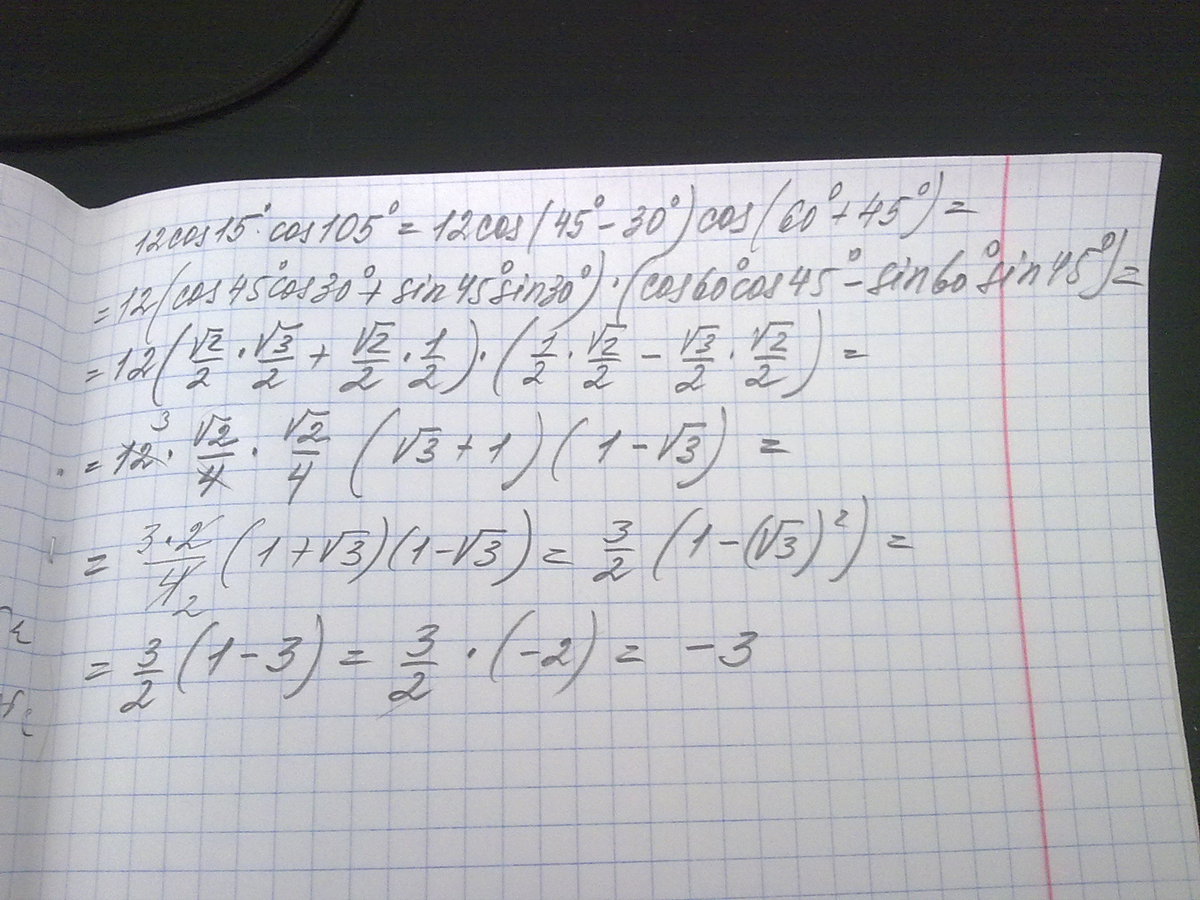 12cos15°·cos105° = 12cos(45° - 30°)cos(60° + 45°) =
= 12(cos45°cos30° + sin45°sin30°)·(cos60°cos45° - sin60°sin45°) =
= 12(√2/2 · √3/2 + √2/2 · 1/2)·(1/2 · √2/2 - √3/2 · √2/2) =
= 12 3 · √2/4 · √2/4 (√3 + 1)(1 - √3) =
= 3·2/4 2 (1 + √3)(1 - √3) = 3/2 (1 - (√3)²) =
= 3/2 (1 - 3) = 3/2 · (-2) = -3